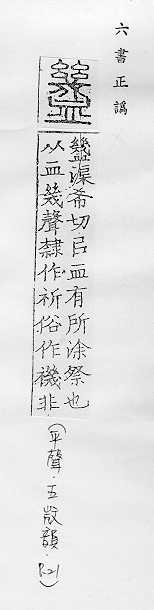 六書正譌
䘇
䘇渠希切㠯血有所涂祭也
从血幾聲隸作祈俗作禨非
(平聲.五微韻.P.21)